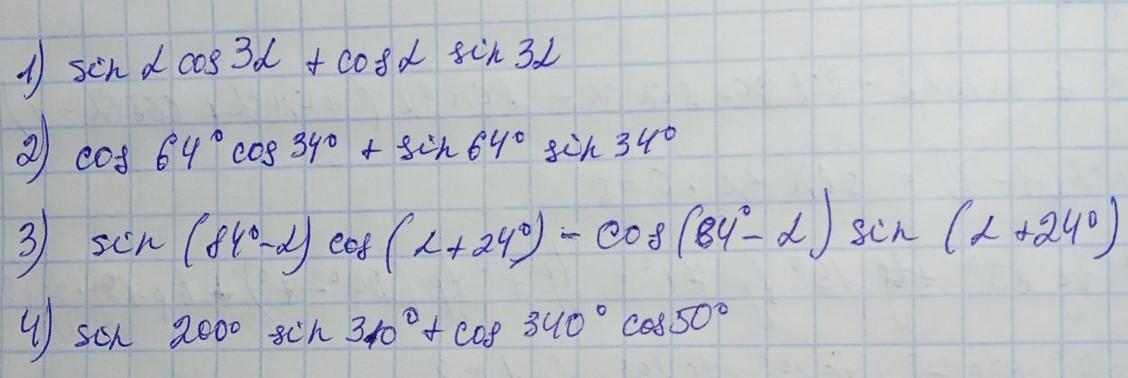 1) sin α cos 3α + cos α sin 3α
2) cos 64° cos 34° + sin 64° sin 34°
3) sin (84° - α) cos (α + 24°) - cos (84° - α) sin (α + 24°)
4) sin 200° sin 310° + cos 340° cos 50°